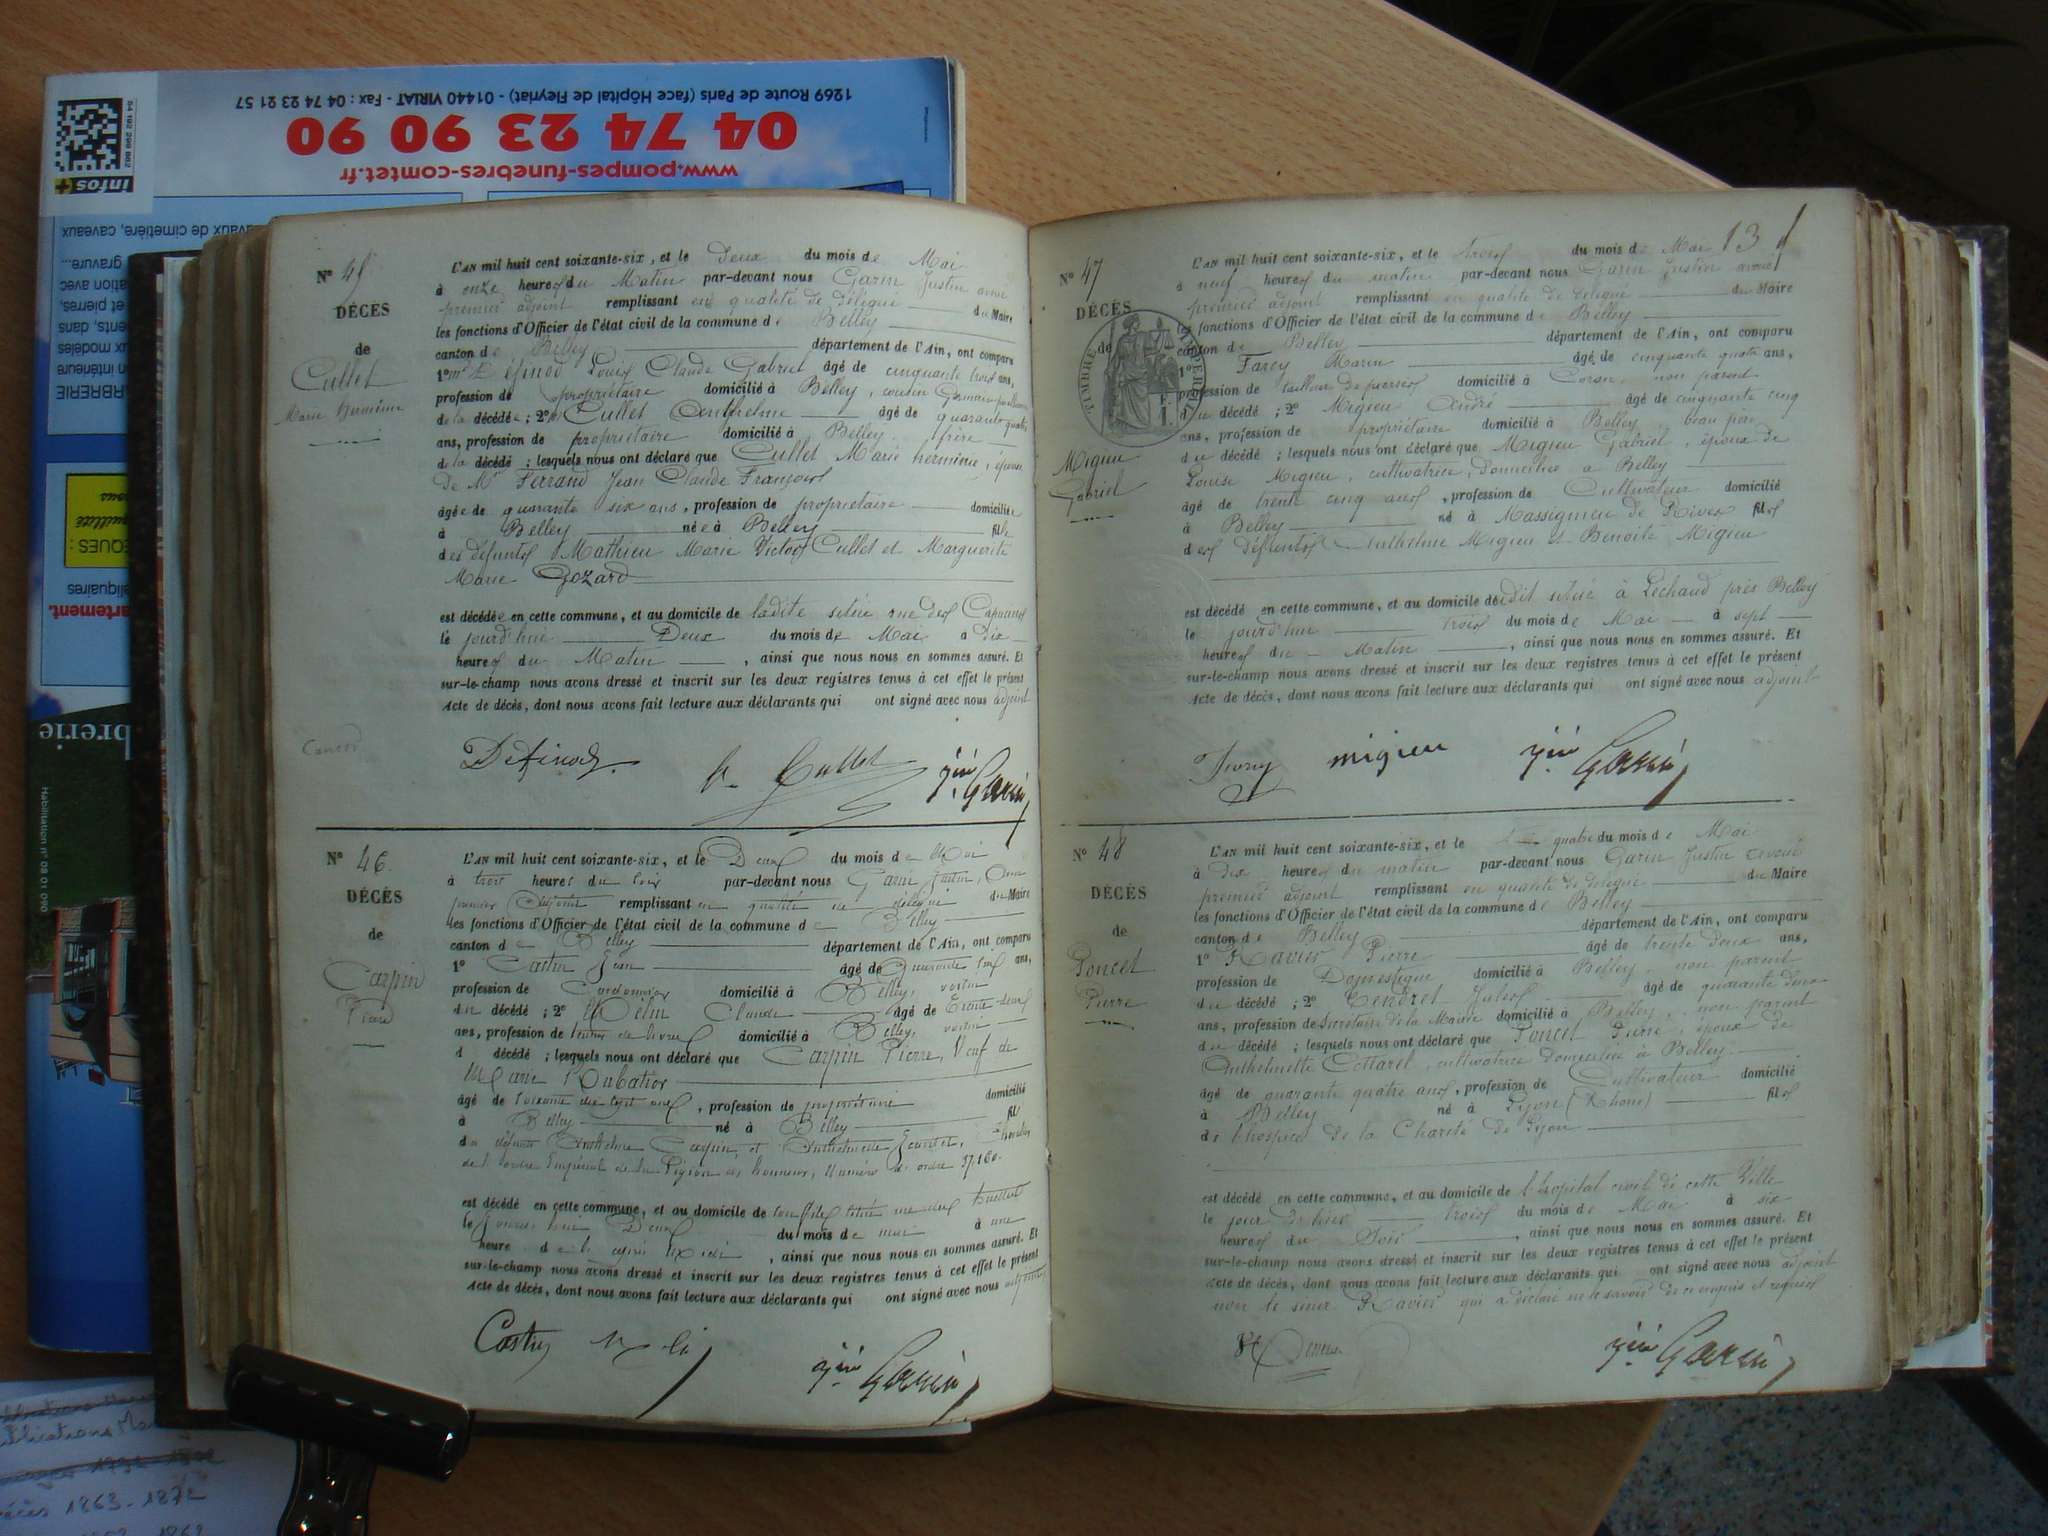 1269 Route de Paris (face Hôpital de Fleyriat) - 01440 VIRIAT - Fax : 04 74 23 21 57
04 74 23 90 90
www.pompes-funebres-comtet.fr
infos+
N° 45
DÉCÈS
de
Cullet
Marie Herminie
L'AN mil huit cent soixante-six, et le Deux du mois de Mai
à onze heures du Matin par-devant nous Garin Justin avoué
premier adjoint remplissant en qualité de délégué du Maire
les fonctions d'Officier de l'état civil de la commune de Belley
canton de Belley département de l'Ain, ont comparu
1° Mr D'éfinod Louis Claude Gabriel âgé de cinquante trois ans,
profession de propriétaire domicilié à Belley, cousin Germain
de la décédée ; 2° Mr Cullet Anthelme âgé de quarante quatre
ans, profession de propriétaire domicilié à Belley, frère
de la décédé ; lesquels nous ont déclaré que Cullet Marie herminie, épouse
de Mr Ferrand Jean Claude François
âgée de quarante six ans, profession de propriétaire domiciliée
à Belley née à Belley fille
des défunts Mathieu Marie Victor Cullet et Marguerite
Marie Gozard
est décédée en cette commune, et au domicile de ladite située rue des Capucins
le jourd'hui Deux du mois de Mai à dix
heures du Matin, ainsi que nous nous en sommes assuré. Et
sur-le-champ nous avons dressé et inscrit sur les deux registres tenus à cet effet le présent
Acte de décès, dont nous avons fait lecture aux déclarants qui ont signé avec nous adjoint
Cullet
Garin
N° 46
DÉCÈS
de
Carpin
Pierre
L'AN mil huit cent soixante-six, et le Deux du mois de Mai
à trois heures du soir par-devant nous Garin Justin,
premier Adjoint remplissant en qualité de délégué du Maire
les fonctions d'Officier de l'état civil de la commune de Belley
canton de Belley département de l'Ain, ont comparu
1° Castin Jean âgé de quarante ans,
profession de Cordonnier domicilié à Belley, voisin
du décédé ; 2° Claude âgé de Trente-deux
ans, profession de domicilié à Belley, voisin
d décédé ; lesquels nous ont déclaré que Carpin Pierre, Veuf de
Marie
âgé de soixante dix sept ans, profession de propriétaire domicilié
à Belley né à Belley fil
de défunts Anthelme Carpin, et Anthelmette
de l'ordre Impérial de la Légion d'honneur, Numéro d'ordre 37.160.
est décédé en cette commune, et au domicile de son fils situé
le jourd'hui Deux du mois de mai à une
heure de l'après Midi, ainsi que nous nous en sommes assuré. Et
sur-le-champ nous avons dressé et inscrit sur les deux registres tenus à cet effet le présent
Acte de décès, dont nous avons fait lecture aux déclarants qui ont signé avec nous adjoint
Garin
13
N° 47
DÉCÈS
de
TIMBRE IMPÉRIAL
Migieu
Gabriel
L'AN mil huit cent soixante-six, et le trois du mois de Mai
à neuf heures du matin par-devant nous Garin Justin avoué
premier adjoint remplissant en qualité de délégué du Maire
les fonctions d'Officier de l'état civil de la commune de Belley
canton de Belley département de l'Ain, ont comparu
1° Farcy Marin âgé de cinquante quatre ans,
profession de tailleur de pierres domicilié à Coron, non parent
du décédé ; 2° Migieu André âgé de cinquante cinq
ans, profession de propriétaire domicilié à Belley, beau père
du décédé ; lesquels nous ont déclaré que Migieu Gabriel, époux de
Louise Migieu, cultivatrice, domiciliée à Belley
âgé de trente cinq ans, profession de Cultivateur domicilié
à Belley né à Massignieu de Rives fils
des défunts Anthelme Migieu et Benoîte Migieu
est décédé en cette commune, et au domicile dudit situé à Lechaud près Belley
le jourd'hui trois du mois de Mai à sept
heures du Matin, ainsi que nous nous en sommes assuré. Et
sur-le-champ nous avons dressé et inscrit sur les deux registres tenus à cet effet le présent
Acte de décès, dont nous avons fait lecture aux déclarants qui ont signé avec nous adjoint
migieu Garin
N° 48
DÉCÈS
de
Poncet
Pierre
L'AN mil huit cent soixante-six, et le quatre du mois de Mai
à dix heures du matin par-devant nous Garin Justin avoué
premier adjoint remplissant en qualité de délégué du Maire
les fonctions d'Officier de l'état civil de la commune de Belley
canton de Belley département de l'Ain, ont comparu
1° Ravier Pierre âgé de trente deux ans,
profession de Domestique domicilié à Belley, non parent
du décédé ; 2° Tendret Jules âgé de quarante deux
ans, profession de Secrétaire de la Mairie domicilié à Belley, non parent
du décédé ; lesquels nous ont déclaré que Poncet Pierre, époux de
Anthelmette Cottarel, cultivatrice domiciliée à Belley
âgé de quarante quatre ans, profession de Cultivateur domicilié
à Belley né à Lyon (Rhône) fils
de l'hospice de la Charité de Lyon
est décédé en cette commune, et au domicile de l'hopital civil de cette Ville
le jour d'hier trois du mois de Mai à six
heures du Soir, ainsi que nous nous en sommes assuré. Et
sur-le-champ nous avons dressé et inscrit sur les deux registres tenus à cet effet le présent
Acte de décès, dont nous avons fait lecture aux déclarants qui ont signé avec nous adjoint
non le sieur Ravier qui a déclaré ne le savoir de ce enquis et requis
Garin